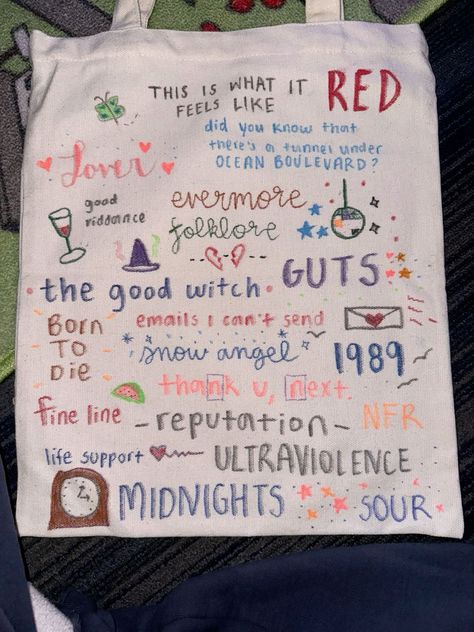 THIS IS WHAT IT
FEELS LIKE
RED
did you know that
there's a tunnel under
OCEAN BOULEVARD?
Lover
good
riddance
evermore
folklore
GUTS
the good witch
BORN
TO
DIE
emails i can't send
snow angel
1989
thank u, next.
fine line
-reputation-
NFR
life support
ULTRAVIOLENCE
MIDNIGHTS
SOUR